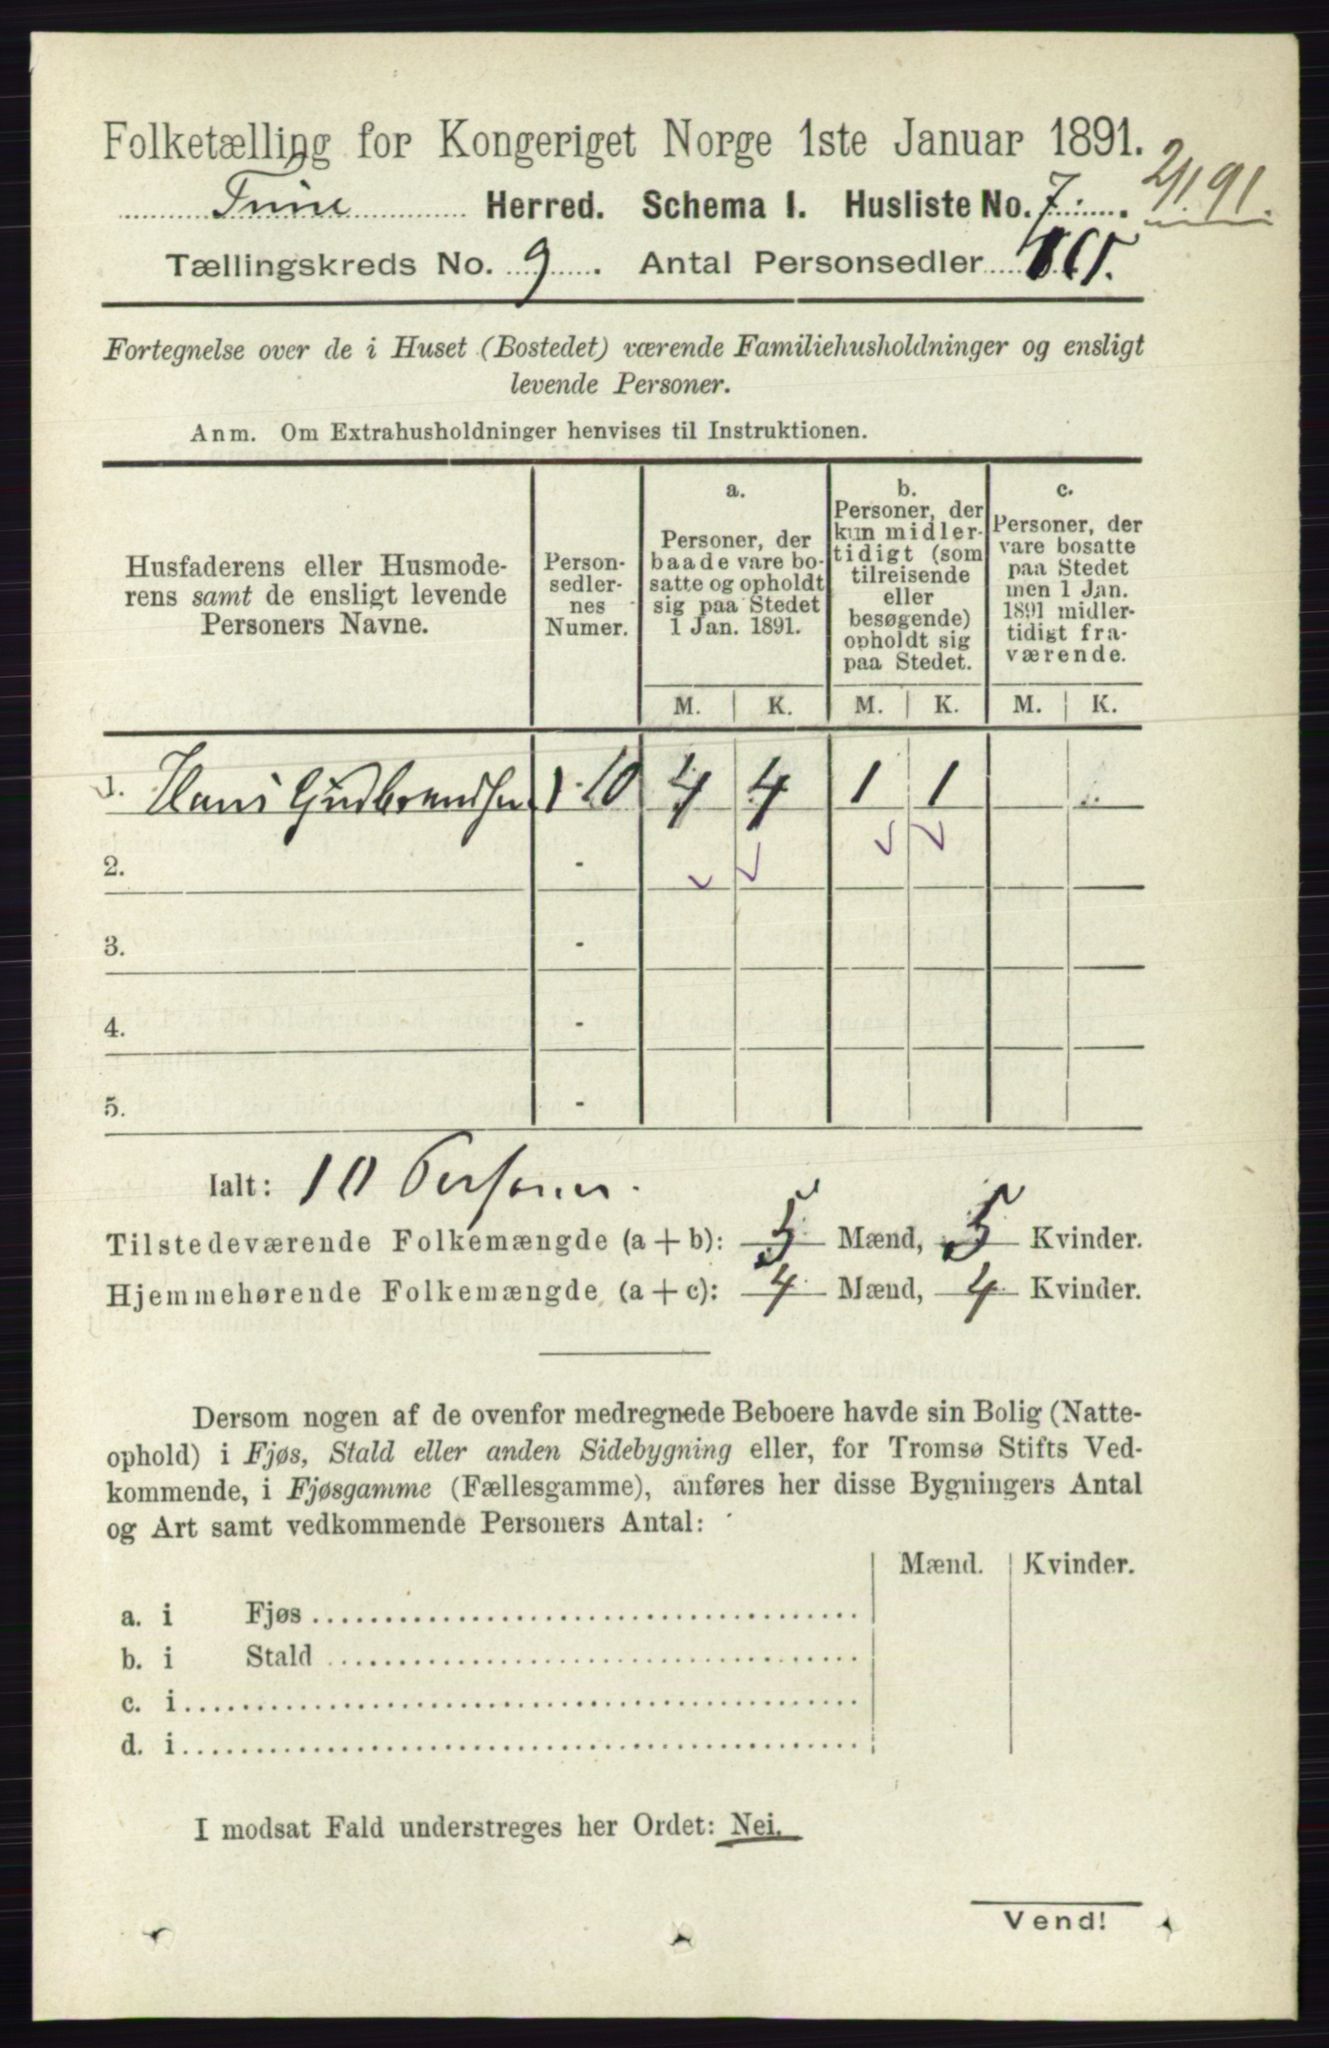 Folketælling for Kongeriget Norge 1ste Januar 1891.
Tune Herred. Schema I. Husliste No. 7. 2/1 91.
Tællingskreds No. 9. Antal Personsedler
Fortegnelse over de i Huset (Bostedet) værende Familiehusholdninger og ensligt
levende Personer.
Anm. Om Extrahusholdninger henvises til Instruktionen.
Husfaderens eller Husmode-
rens samt de ensligt levende
Personers Navne.
Person-
sedler-
nes
Numer.
a.
Personer, der
baade vare bo-
satte og opholdt
sig paa Stedet
1 Jan. 1891.
b.
Personer, der
kun midler-
tidigt (som
tilreisende
eller
besøgende)
opholdt sig
paa Stedet.
c.
Personer, der
vare bosatte
paa Stedet
men 1 Jan.
1891 midler-
tidigt fra-
værende.
M. K. M. K. M. K.
1. Hans Gudbrandsen 1-10 4 4 1 1
2. -
3. -
4. -
5. -
Ialt: 10 Personer.
Tilstedeværende Folkemængde (a + b): 5 Mænd, 5 Kvinder.
Hjemmehørende Folkemængde (a + c): 4 Mænd, 4 Kvinder.
Dersom nogen af de ovenfor medregnede Beboere havde sin Bolig (Natte-
ophold) i Fjøs, Stald eller anden Sidebygning eller, for Tromsø Stifts Ved-
kommende, i Fjøsgamme (Fællesgamme), anføres her disse Bygningers Antal
og Art samt vedkommende Personers Antal:
Mænd. Kvinder.
a. i Fjøs
b. i Stald
c. i
d. i
I modsat Fald understreges her Ordet: Nei.
Vend!